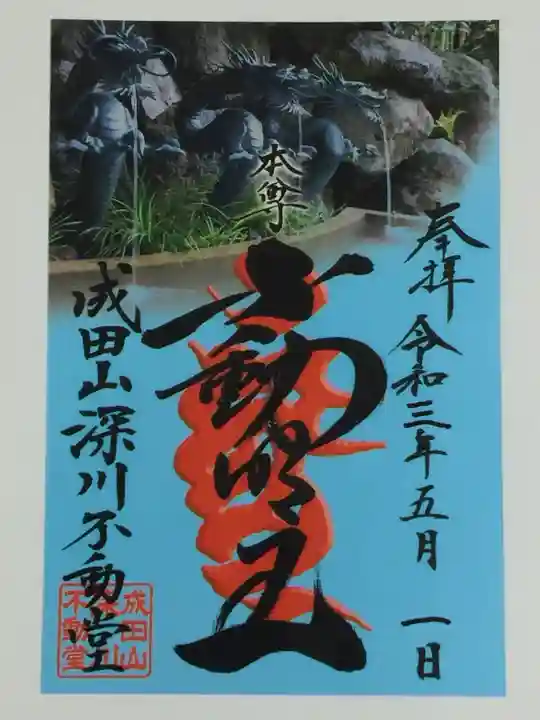 奉拝 令和三年五月 一日
本尊
不動明王
成田山深川不動堂
成田山
深川
不動堂